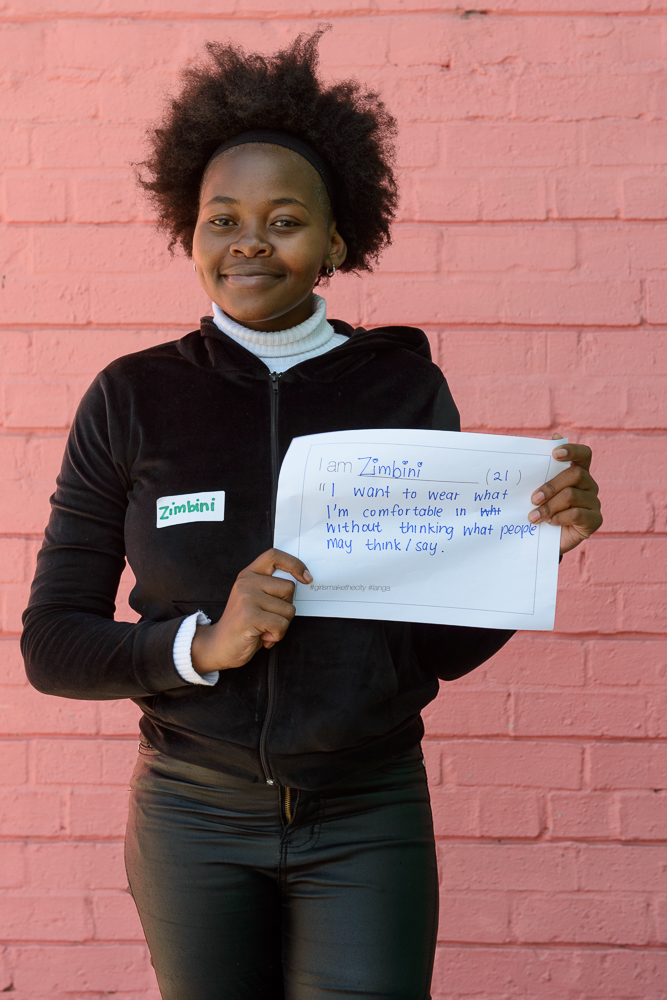 Zimbini
I am Zimbini (21)
"I want to wear what
I'm comfortable in wht
without thinking what people
may think/say.
#girlsmakethecity #langa